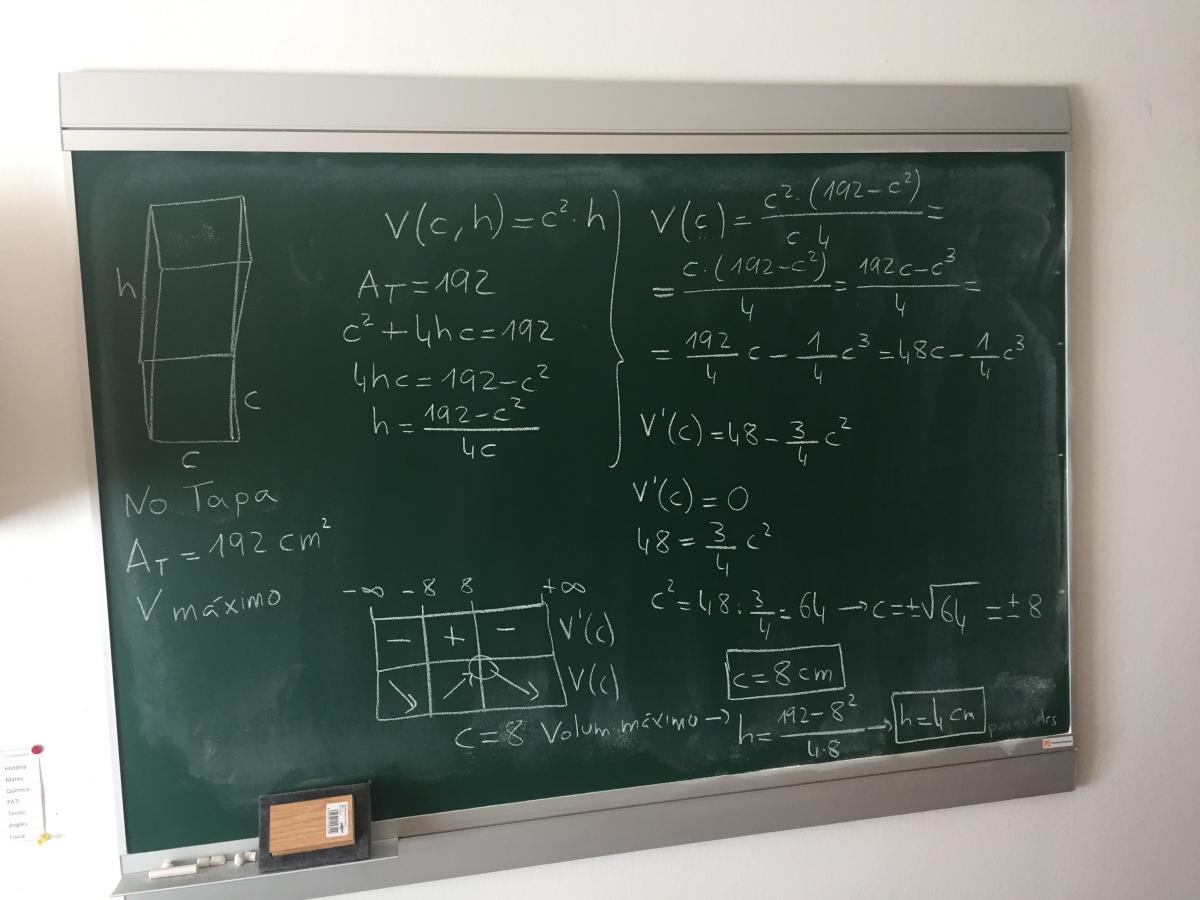 h
c
c
No Tapa
A_T = 192 cm²
V máximo
V(c, h) = c² · h
A_T = 192
c² + 4hc = 192
4hc = 192 - c²
h = (192 - c²) / 4c
-∞ -8 8 +∞
- + - V'(c)
↘ ↗ ↘ V(c)
V(c) = (c² · (192 - c²)) / (c · 4) =
= (c · (192 - c²)) / 4 = (192c - c³) / 4 =
= 192/4 c - 1/4 c³ = 48c - 1/4 c³
V'(c) = 48 - 3/4 c²
V'(c) = 0
48 = 3/4 c²
c² = 48 : 3/4 = 64 → c = ±√64 = ± 8
c = 8 cm
c = 8 Volum máximo → h = (192 - 8²) / (4·8) → h = 4 cm
Història
Mates
Química
PATI
Tecno
Anglès
Física